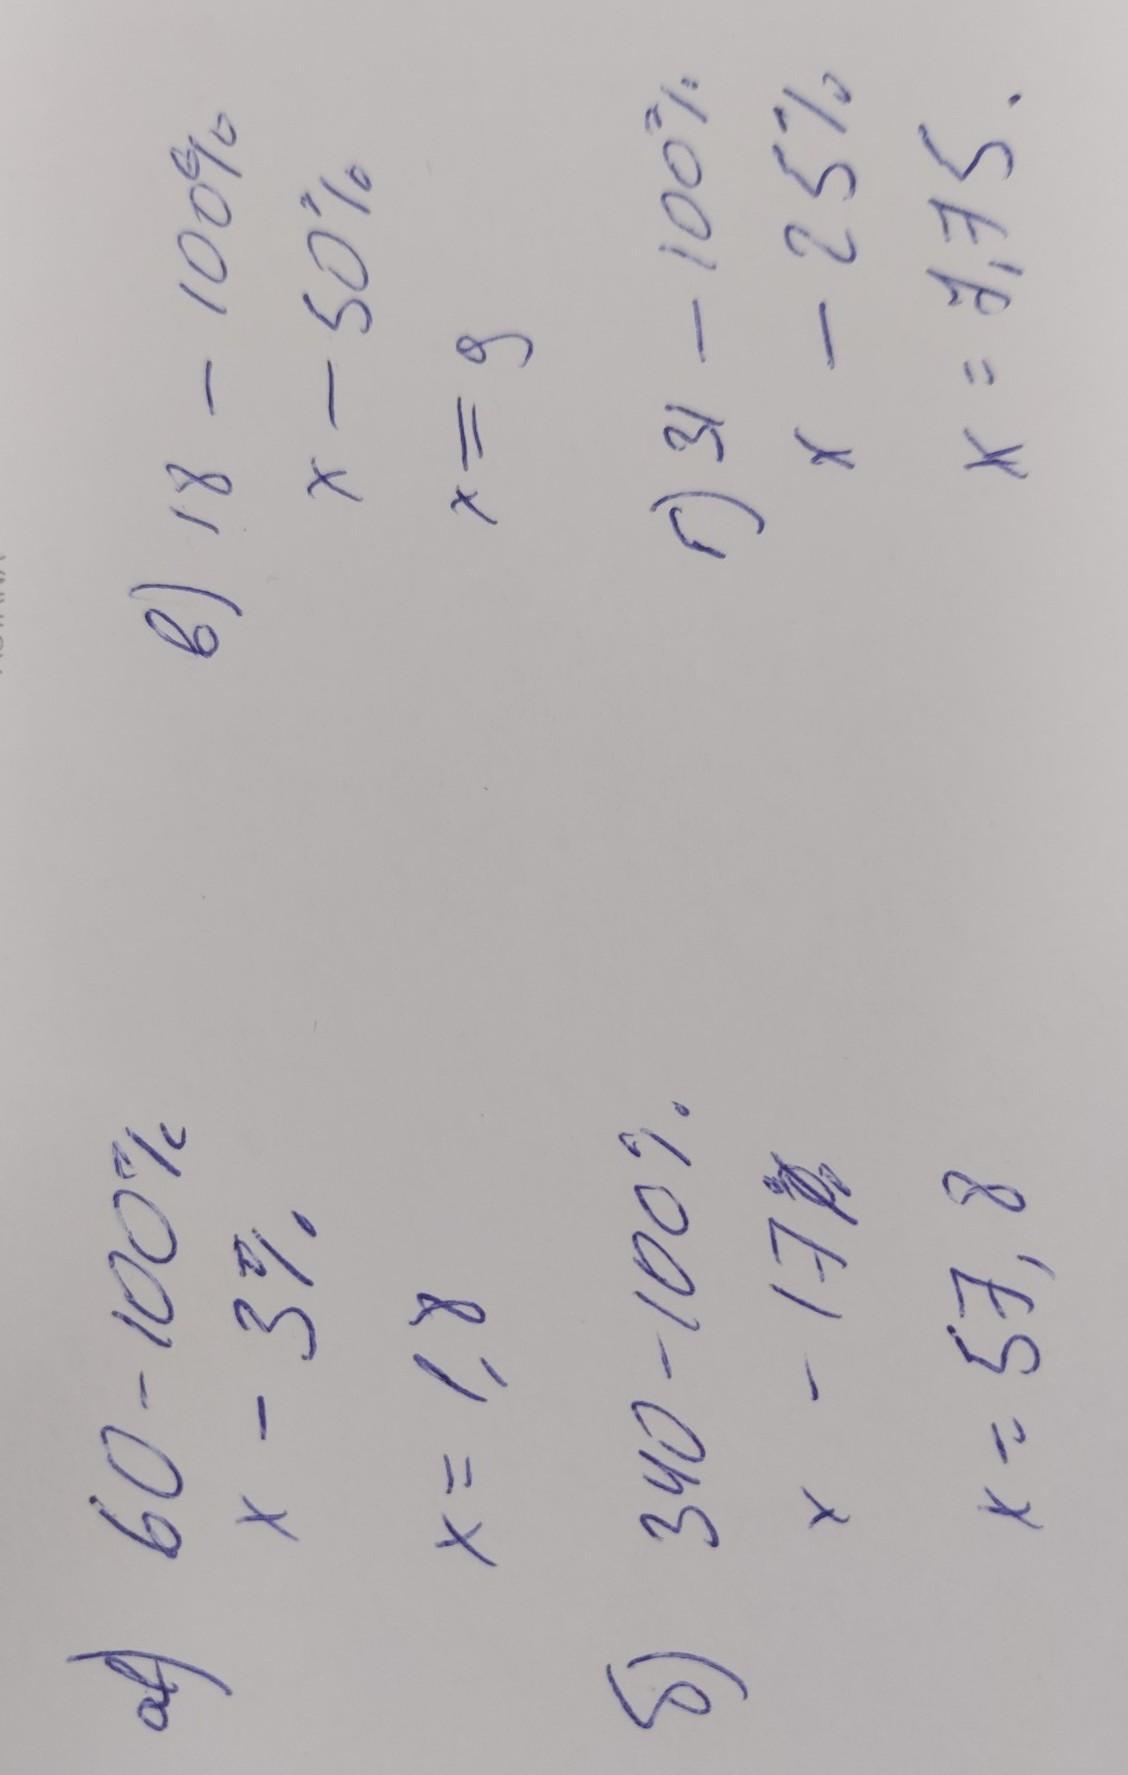 а) 60 - 100%
x - 3%
x = 1,8
б) 340 - 100%
x - 17%
x = 57,8
в) 18 - 100%
x - 50%
x = 9
г) 31 - 100%
x - 25%
x = 7,75.